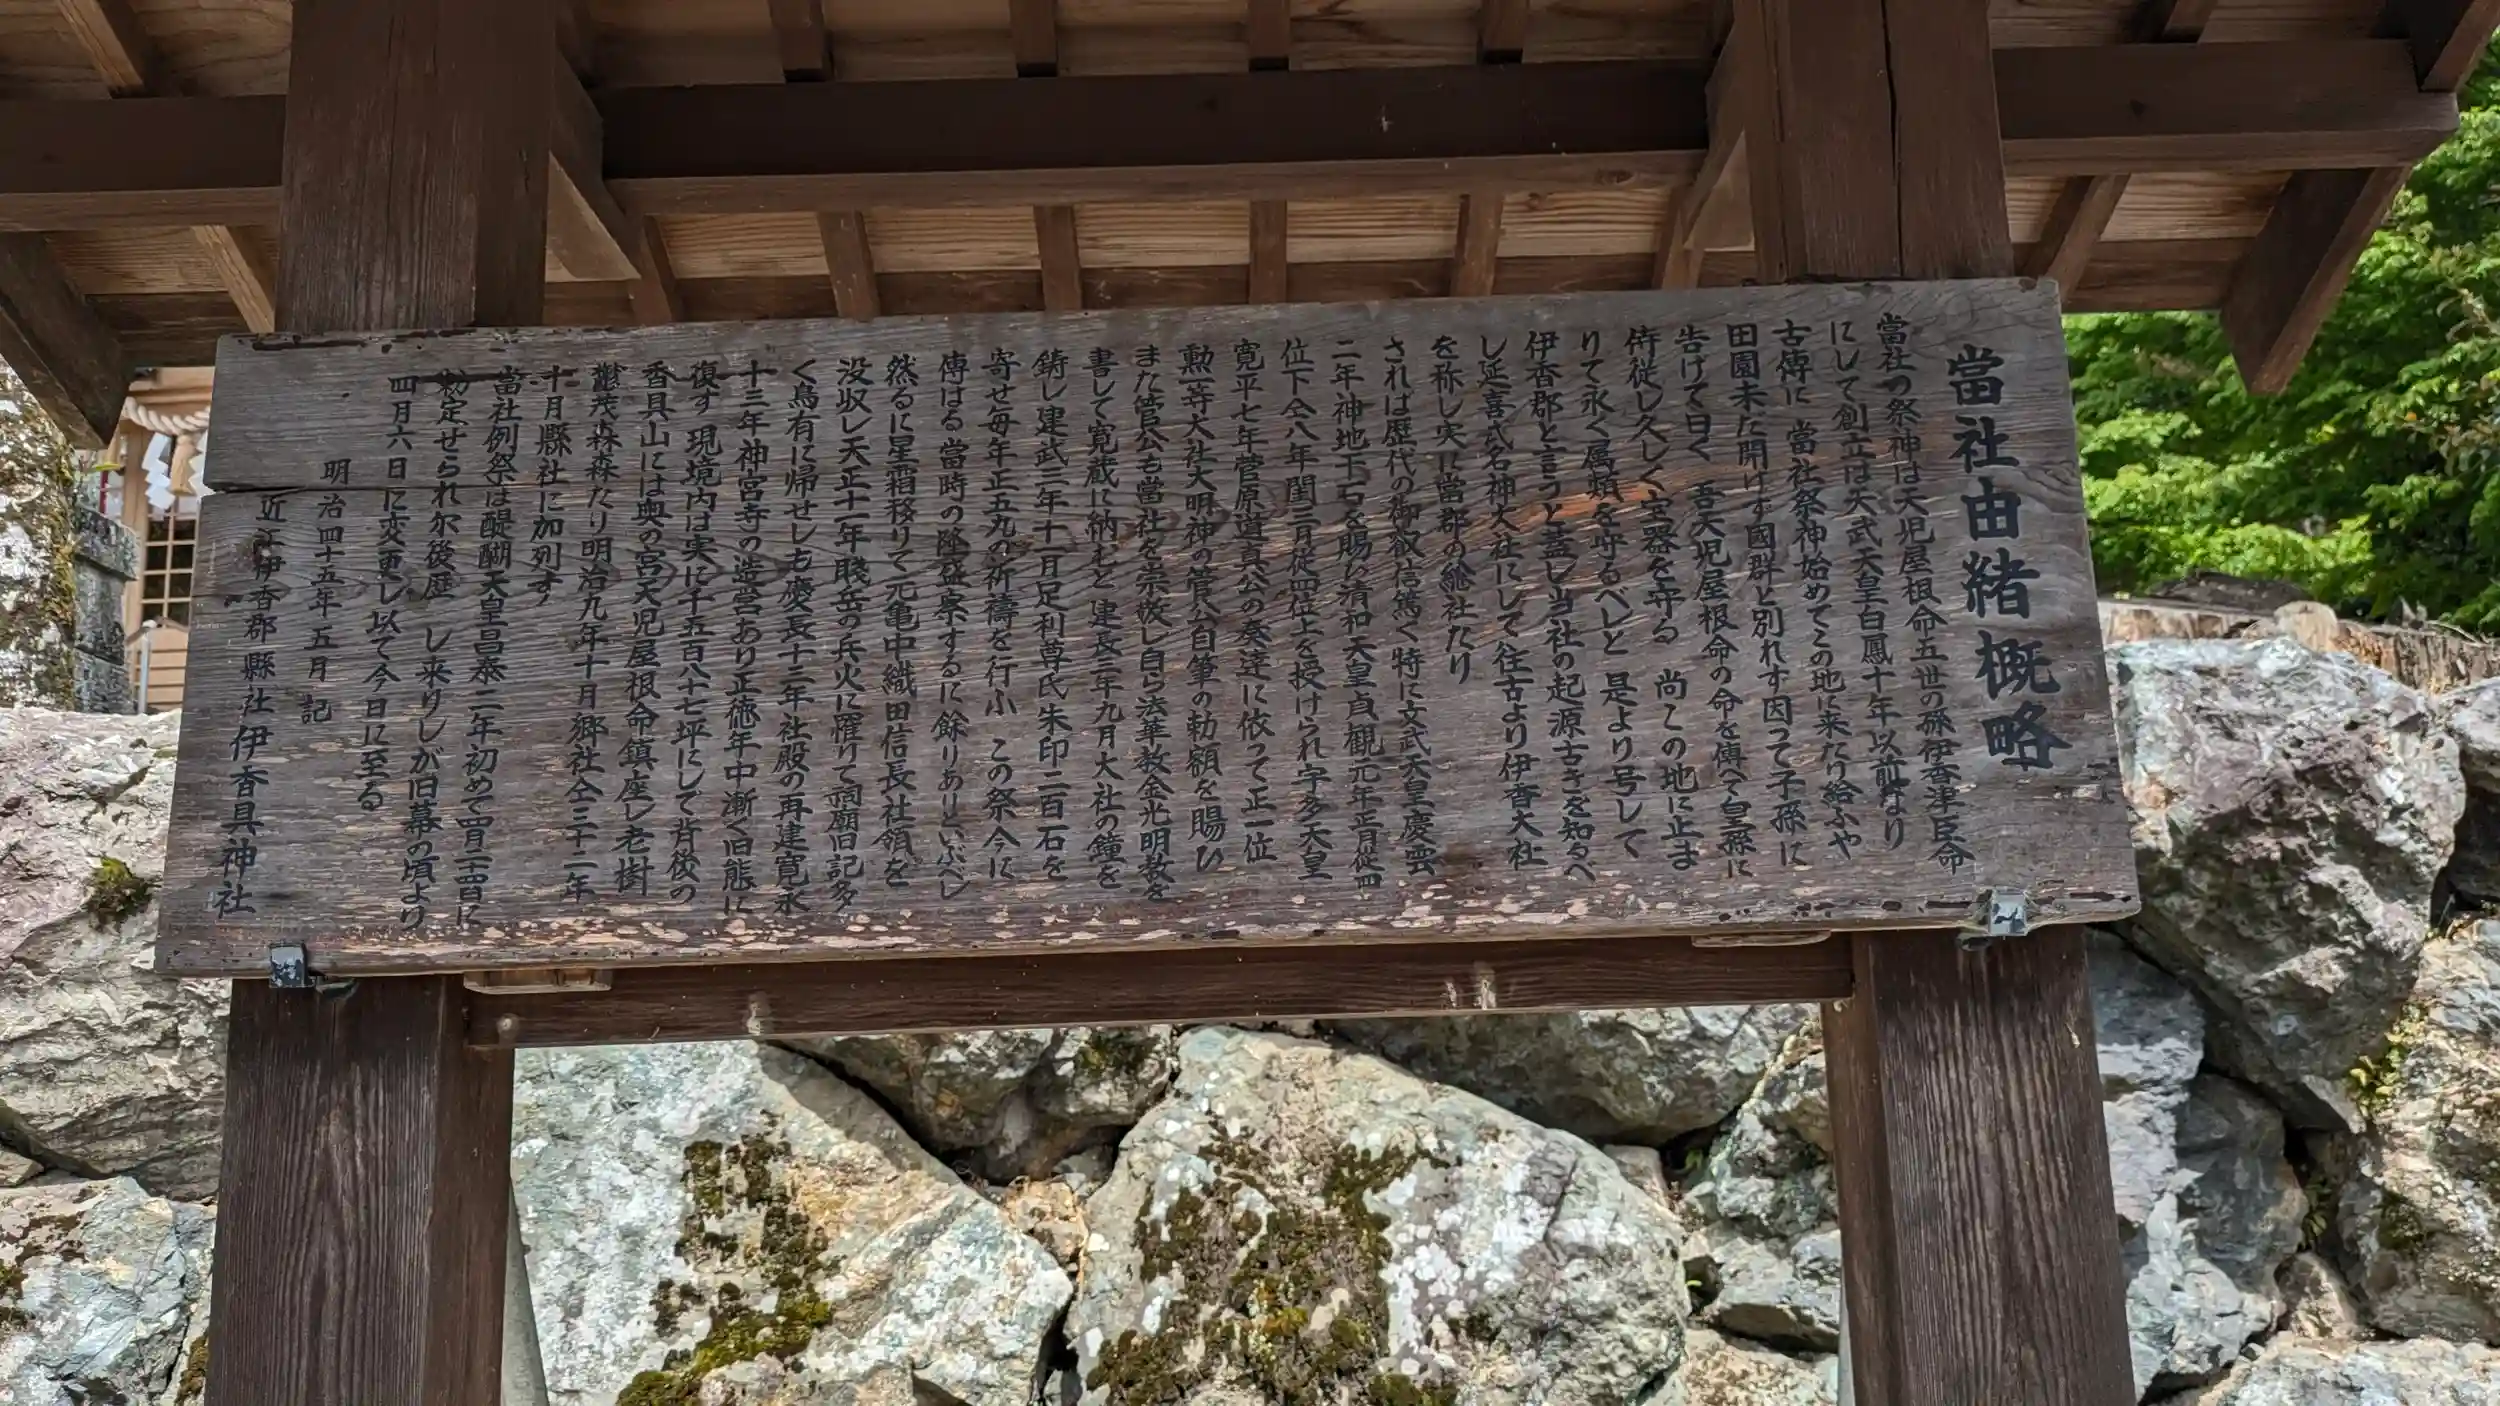 當社由緒概略
當社の祭神は天児屋根命五世の孫伊香津臣命
にして創立は天武天皇白鳳十年以前なり
古傳に 當社祭神始めてこの地に来たり給ふや
田園未だ開けず國群と別れす因って子孫に
告げて曰く 吾天児屋根命の命を傳へて皇孫に
侍従し久しく宝器を守る 尚この地に止ま
りて永く属類を守るべしと 是より号して
伊香郡と言うと蓋し当社の起源古きを知るべ
し延喜式名神大社にして往古より伊香大社
を称し実に當郡の総社たり
されは歴代の御叡信篤く特に文武天皇慶雲
二年神地下石を賜ひ清和天皇貞観元年正月従四
位下仝八年閏三月従四位上を授けられ宇多天皇
寛平七年菅原道真公の奏達に依って正一位
勲一等大社大明神の菅公自筆の勅額を賜ひ
また管公も當社を崇拔し自ら法華教金光明教を
書して寛蔵に納むと 建長三年九月大社の鐘を
鋳し建武三年十一月足利尊氏朱印二百石を
寄せ毎年正五九の祈禱を行ふ この祭今に
傳はる 當時の隆盛察するに餘りありといふべし
然るに星霜移りて元亀中織田信長社領を
没収し天正十一年賤岳の兵火に罹りて祠廟旧記多
く烏有に帰せしも慶長十三年社殿の再建寛永
十三年神宮寺の造営あり正徳年中漸く旧態に
復す 現境内は実に千五百八十七坪にして背後の
香具山には奥の宮天児屋根命鎮座し老樹
鬱茂森森たり明治九年十月郷社仝三十二年
十月縣社に加列す
當社例祭は醍醐天皇昌泰二年初めて四月二十四日に
勅定せられ尓後歴 し来りしが旧幕の頃より
四月六日に変更し以て今日に至る
明治四十五年五月 記
近江伊香郡縣社伊香具神社